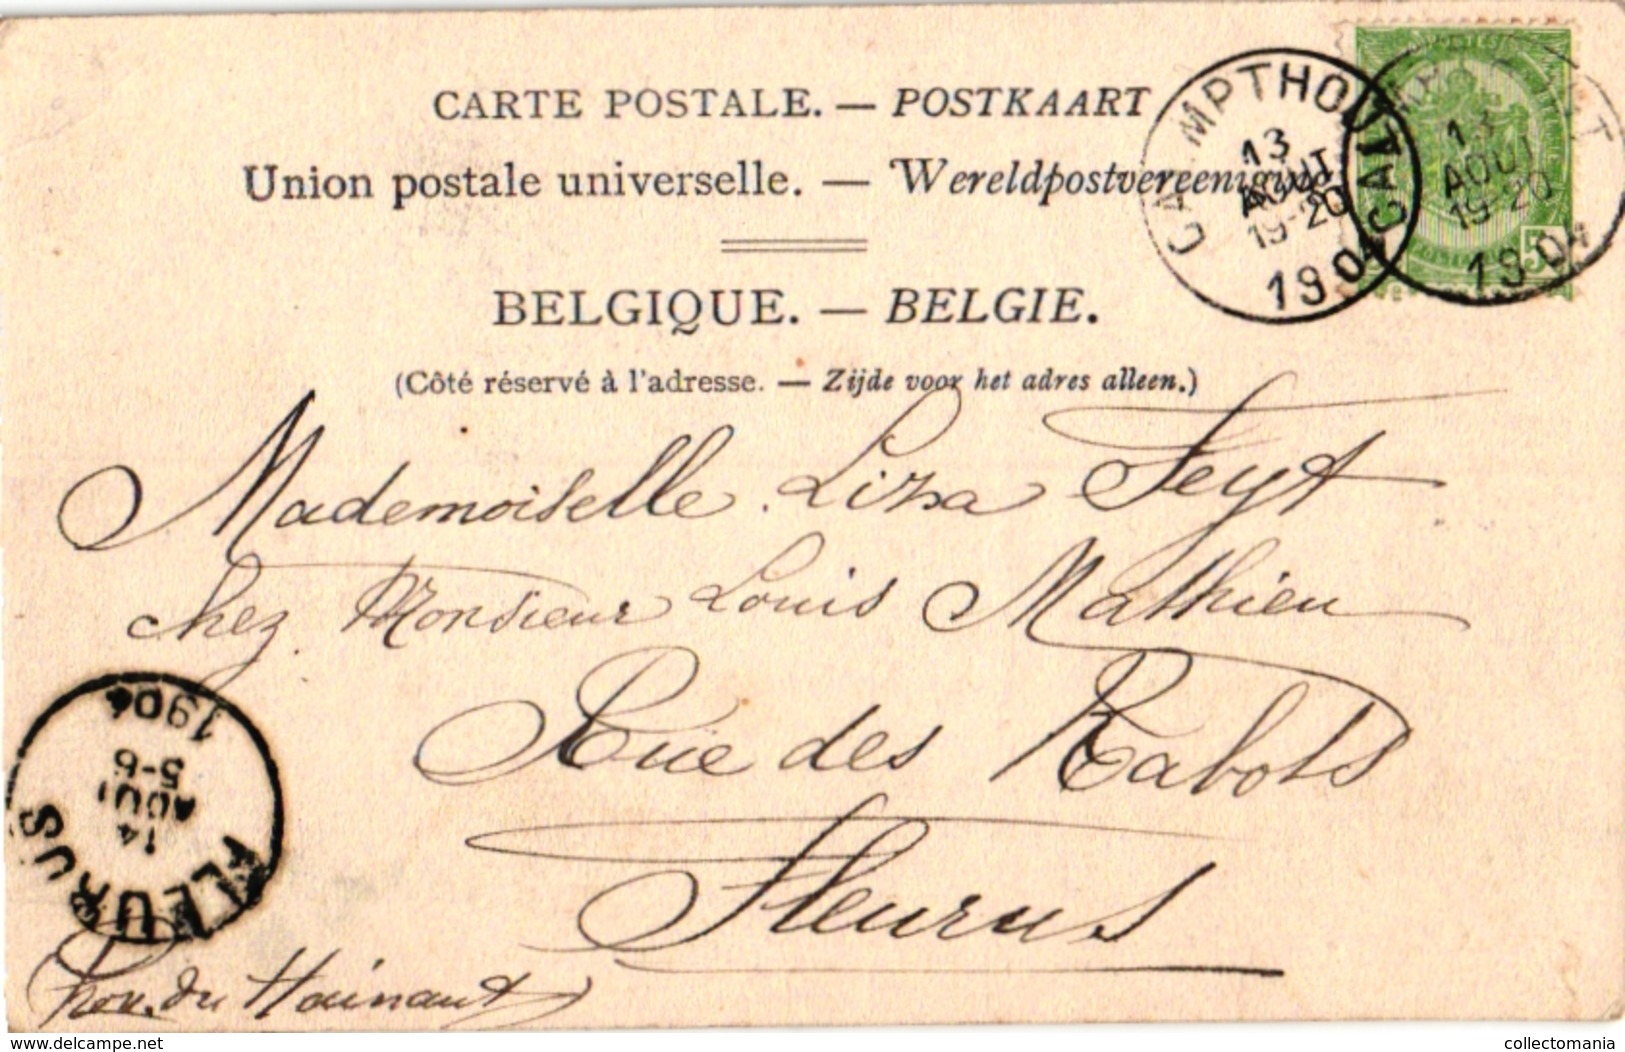 CARTE POSTALE. — POSTKAART
Union postale universelle. — Wereldpostvereeniging
BELGIQUE. — BELGIE.
(Côté réservé à l'adresse. — Zijde voor het adres alleen.)
CALMPTHOUT
13
AOUT
19-20
1904
13
AOUT
19-20
1904
5
Mademoiselle Liza Feyt
chez Monsieur Louis Mathieu
Rue des Rabots
Fleurus
Prov. du Hainaut
FLEURUS
14
AOUT
5-6
1904
www.delcampe.net
collectomania